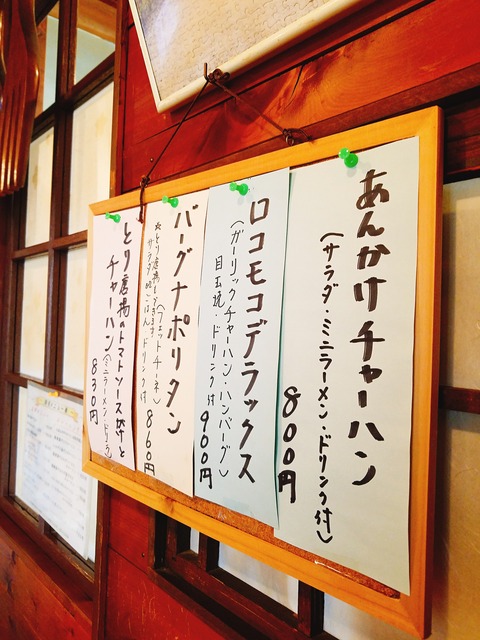 あんかけチャーハン
(サラダ・ミニラーメン・ドリンク付)
800円
ロコモコデラックス
(ガーリックチャーハン・ハンバーグ)
目玉焼・ドリンク付
900円
バーグナポリタン
(フェットチーネ)
サラダ
ドリンク付
860円
とり唐揚のトマトソースがけと
チャーハン(ミニラーメン・ドリンク)
830円